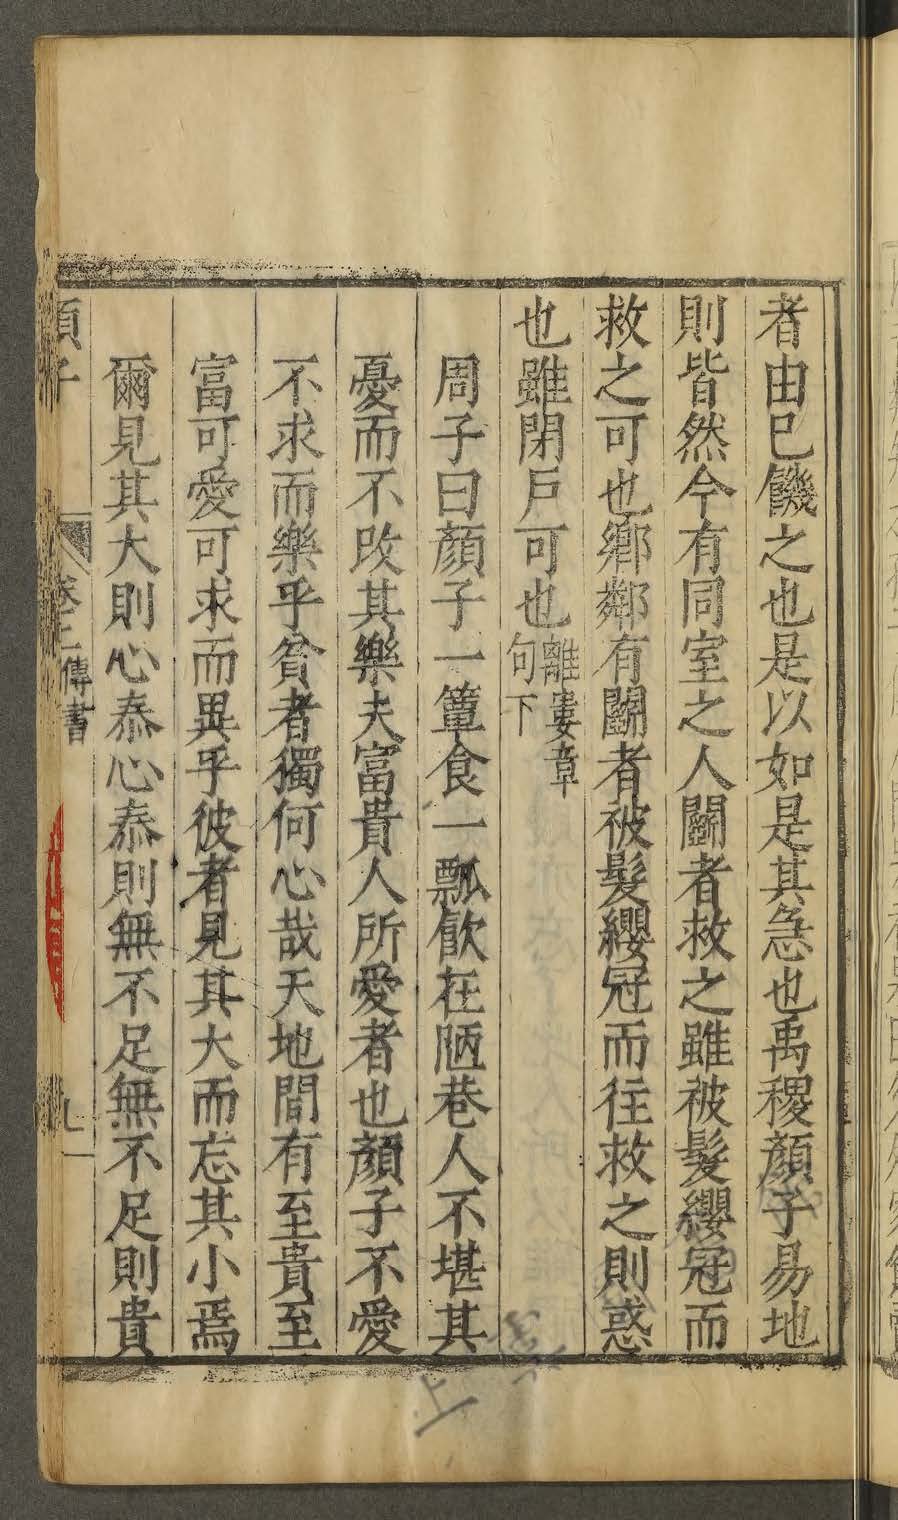 者由已饑之也是以如是其急也禹稷顏子易地
則皆然今有同室之人鬭者救之雖被髮纓冠而
救之可也鄉鄰有鬭者被髮纓冠而往救之則惑
也雖閉戶可也離婁章
句下
周子曰顏子一簞食一瓢飲在陋巷人不堪其
憂而不改其樂夫富貴人所愛者也顏子不愛
不求而樂乎貧者獨何心哉天地間有至貴至
富可愛可求而異乎彼者見其大而忘其小焉
爾見其大則心泰心泰則無不足無不足則貴
卷上 傳書